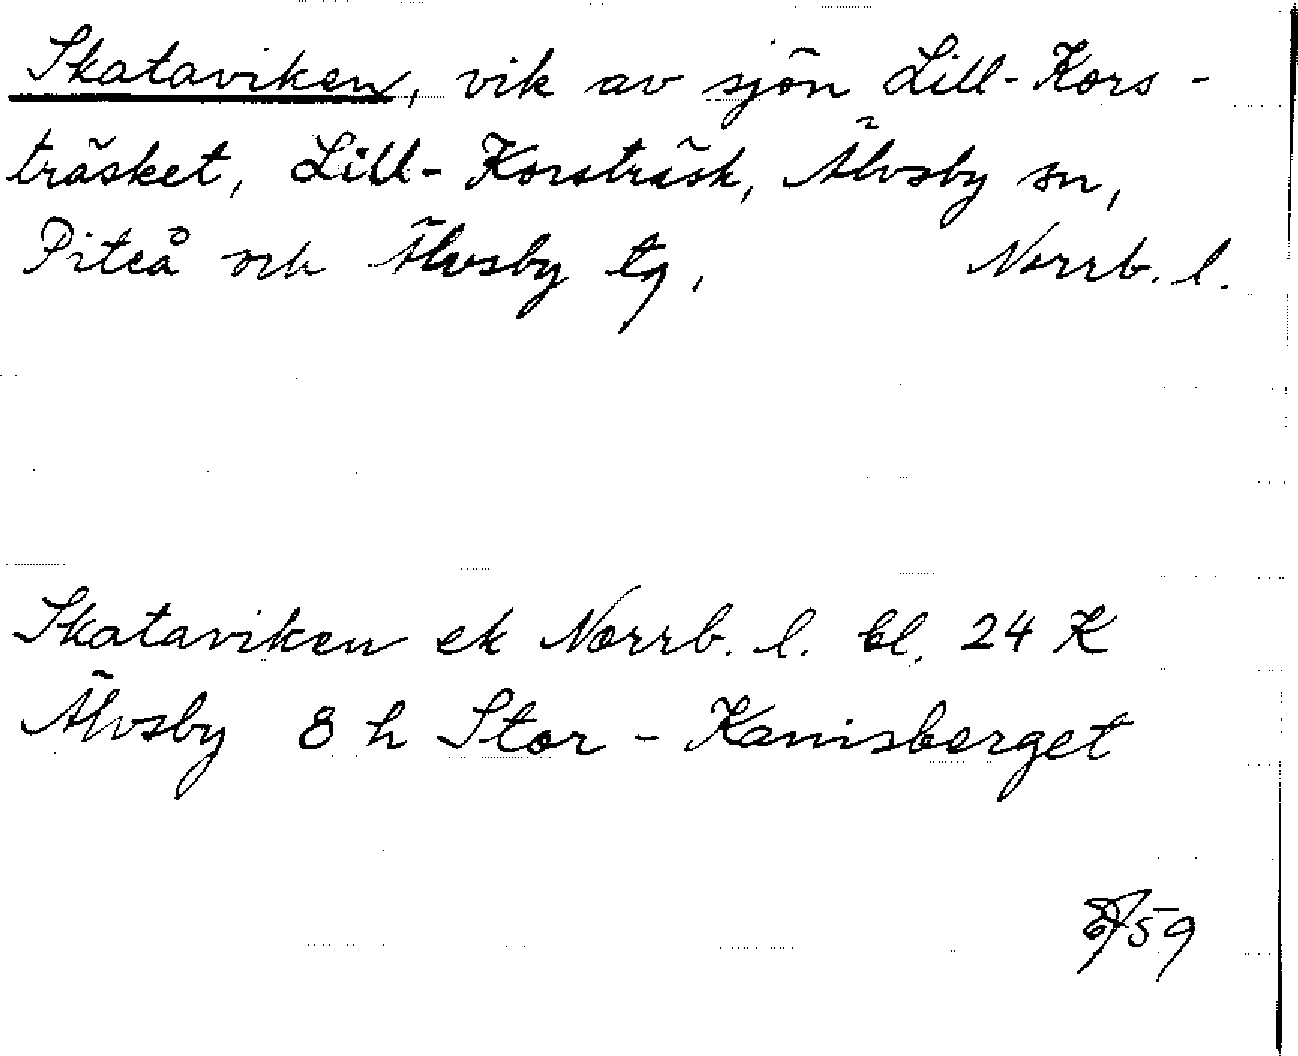 Skataviken, vik av sjön Lill-Kors-
träsket, Lill-Korsträsk, Älvsby sn,
Piteå och Älvsby tg, Norrb. l.
Skataviken ek Norrb. l. bl. 24 K
Älvsby 8 h Stor-Kanisberget
59